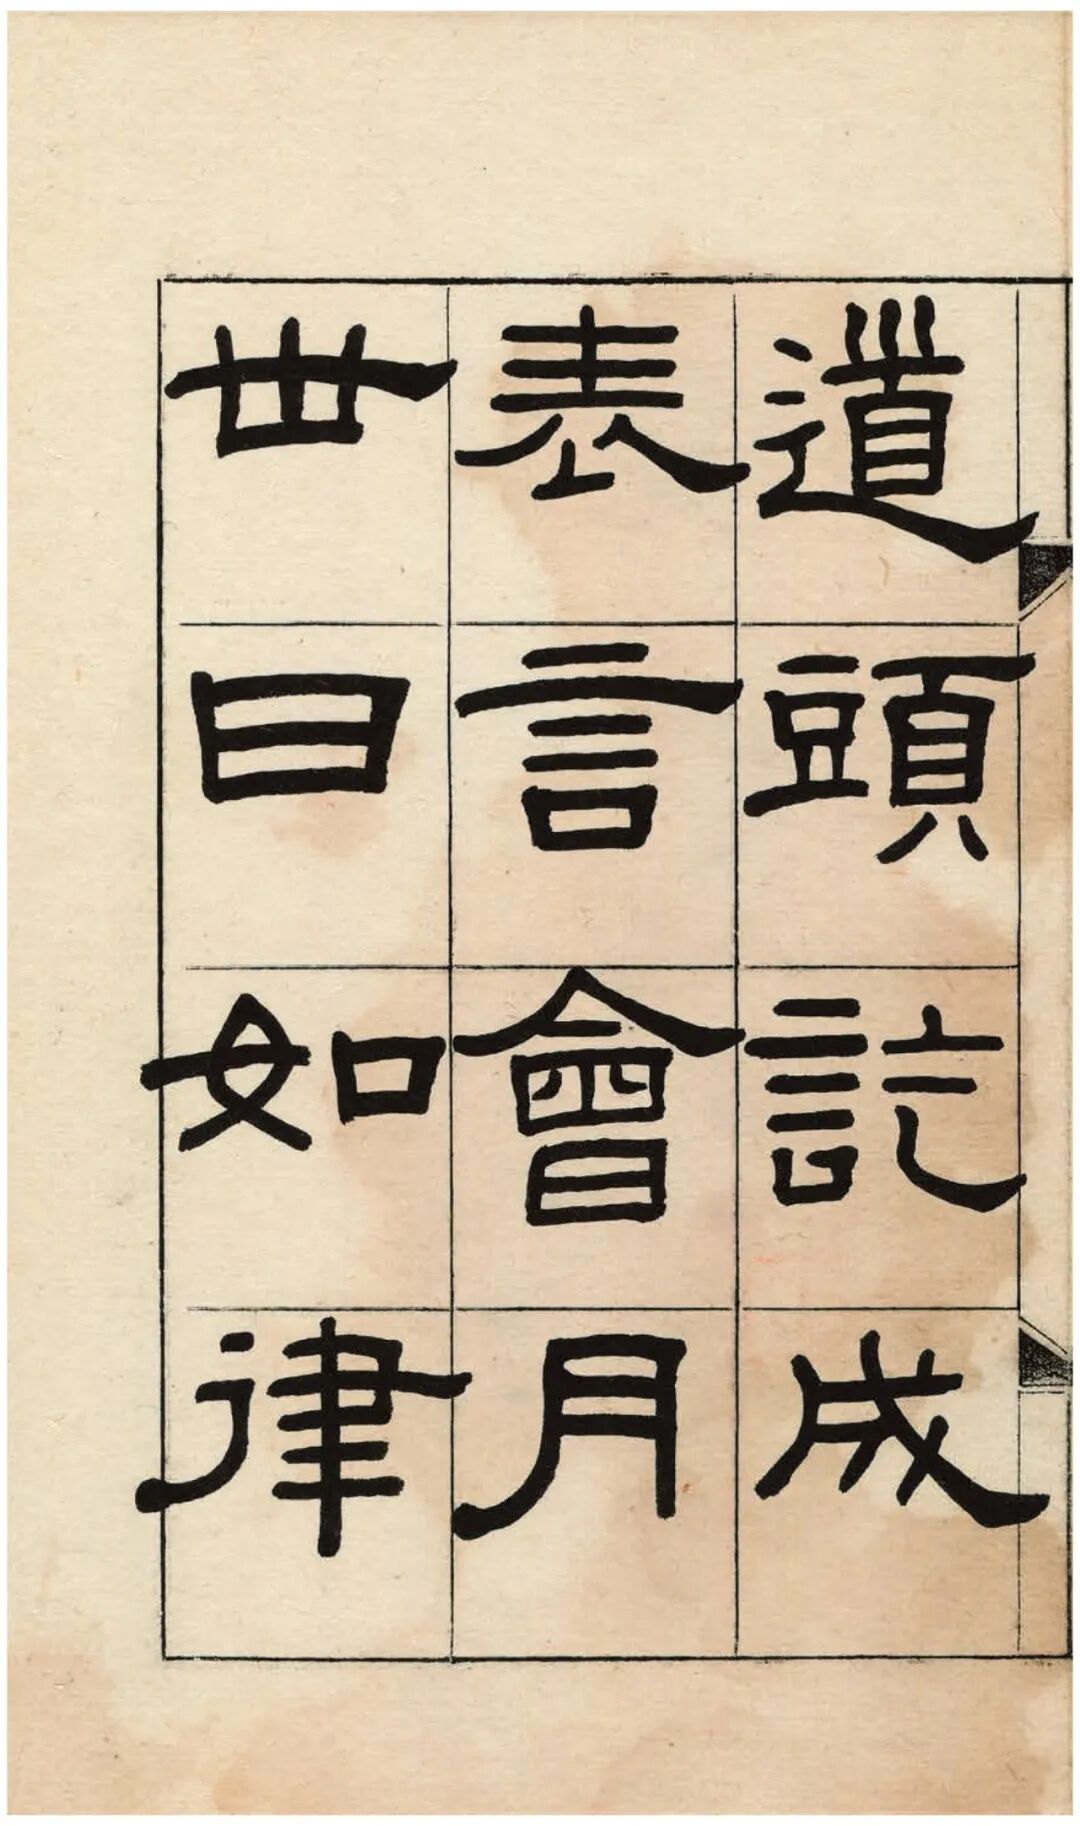 道頭訖成
表言會月
卅日如律